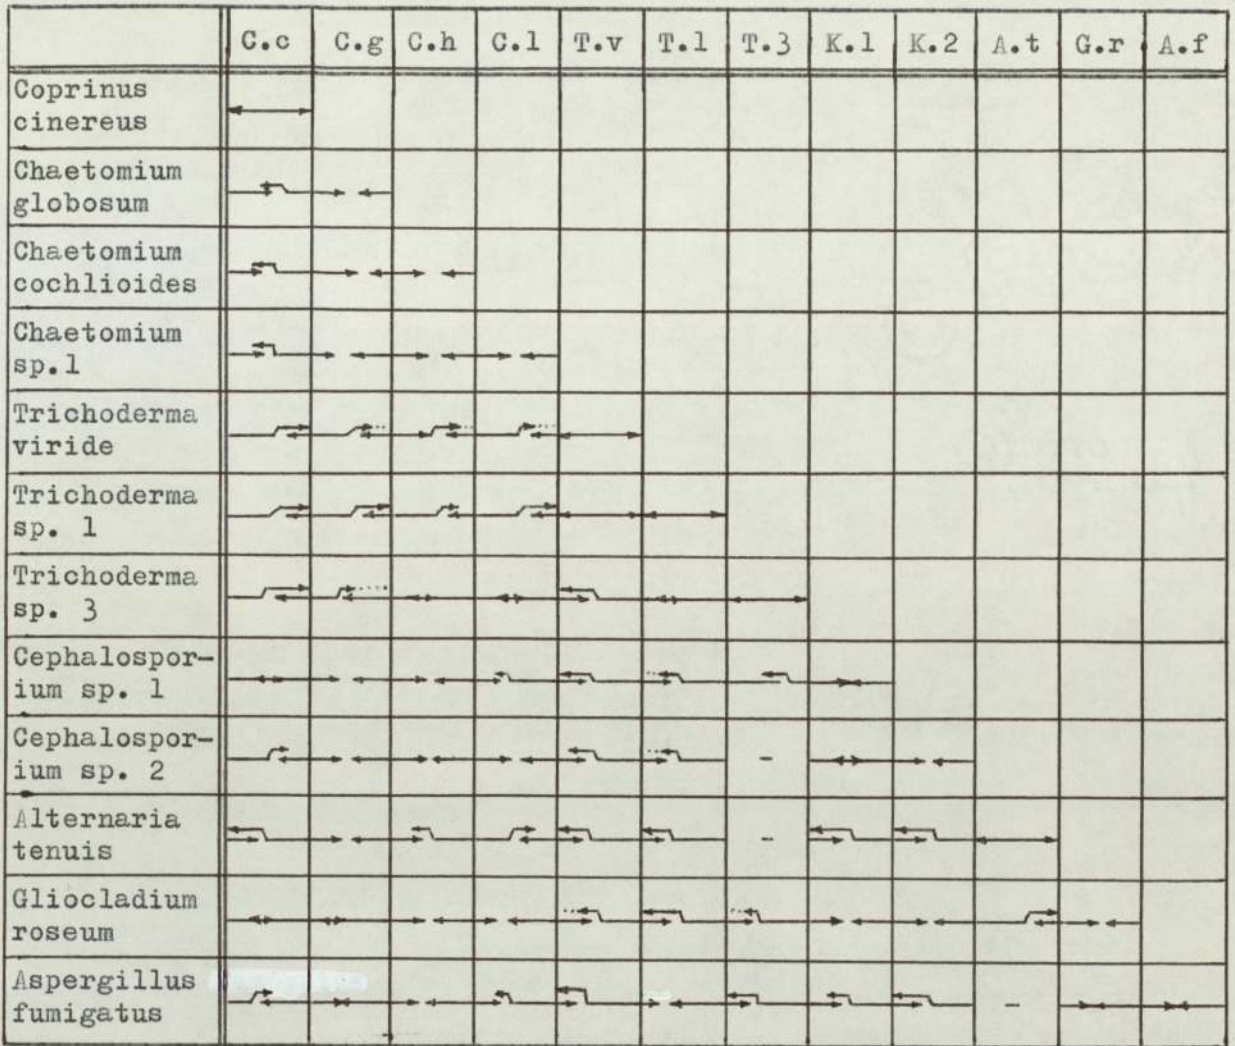 C.c C.g C.h C.l T.v T.l T.3 K.l K.2 A.t G.r A.f
Coprinus
cinereus
Chaetomium
globosum
Chaetomium
cochlioides
Chaetomium
sp.l
Trichoderma
viride
Trichoderma
sp. l
Trichoderma
sp. 3
Cephalospor-
ium sp. l
Cephalospor-
ium sp. 2 -
Alternaria
tenuis -
Gliocladium
roseum
Aspergillus
fumigatus -